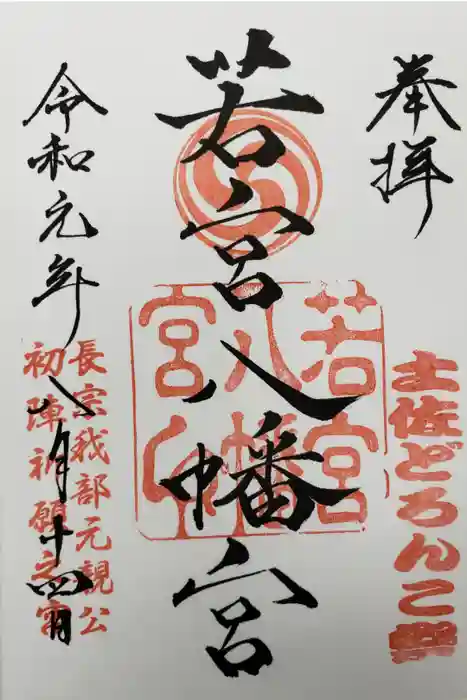 奉拝
土佐どろんこ祭
若宮八幡宮
若宮
八幡
宮印
長宗我部元親公
初陣祈願之宮
令和元年八月十四日